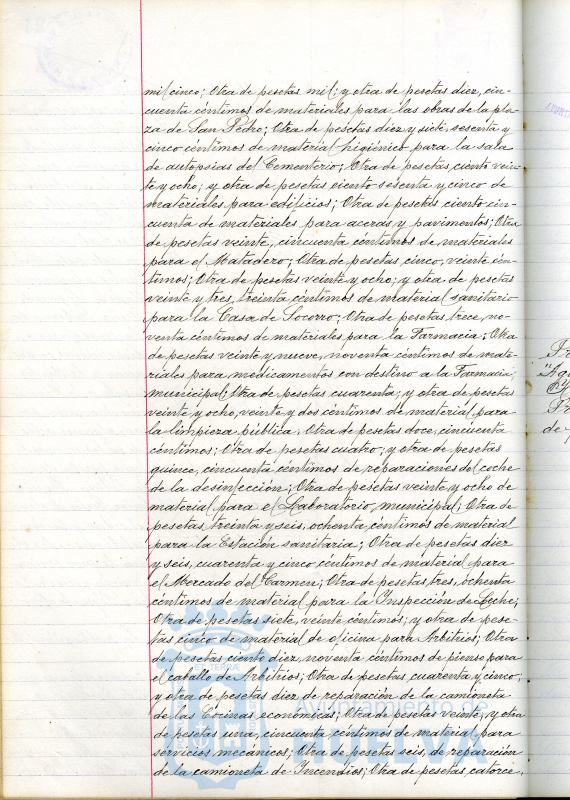 mil cinco; Otra de pesetas mil; y otra de pesetas diez, cin-
cuenta céntimos de materiales para las obras de la pla-
za de San Pedro; Otra de pesetas diez y siete sesenta y
cinco céntimos de material higiénico para la sala
de autopsias del Cementerio; Otra de pesetas ciento vein-
te y ocho; y otra de pesetas ciento sesenta y cinco de
materiales para edificios; Otra de pesetas ciento cin-
cuenta de materiales para aceras y pavimentos; Otra
de pesetas veinte, cincuenta céntimos de materiales
para el Matadero; Otra de pesetas cinco, veinte cén-
timos; Otra de pesetas veinte y ocho; y otra de pesetas
veinte y tres, treinta céntimos de material sanitario
para la Casa de Socorro; Otra de pesetas trece, no-
venta céntimos de materiales para la Farmacia; Otra
de pesetas veinte y nueve, noventa céntimos de mate-
riales para medicamentos con destino a la Farmacia
municipal; Otra de pesetas cuarenta; y otra de pesetas
veinte y ocho, veinte y dos céntimos de material para
la limpieza pública; Otra de pesetas doce, cincuenta
céntimos; Otra de pesetas cuatro; y otra de pesetas
quince, cincuenta céntimos de reparaciones del coche
de la desinfección; Otra de pesetas veinte y ocho de
material para el Laboratorio municipal; Otra de
pesetas treinta y seis, ochenta céntimos de material
para la Estación sanitaria; Otra de pesetas diez
y seis, cuarenta y cinco céntimos de material para
el Mercado del Carmen; Otra de pesetas tres, ochenta
céntimos de material para la Inspección de Leche;
Otra de pesetas siete, veinte céntimos; y otra de pese-
tas cinco de material de oficina para Arbitrios; Otra
de pesetas ciento diez, noventa céntimos de pienso para
el caballo de Arbitrios; Otra de pesetas cuarenta y cinco;
y otra de pesetas diez de reparación de la camioneta
de las Cocinas económicas; Otra de pesetas veinte; y otra
de pesetas una, cincuenta céntimos de material para
servicios mecánicos; Otra de pesetas seis, de reparación
de la camioneta de Incendios; Otra de pesetas catorce,
Ayuntamiento de